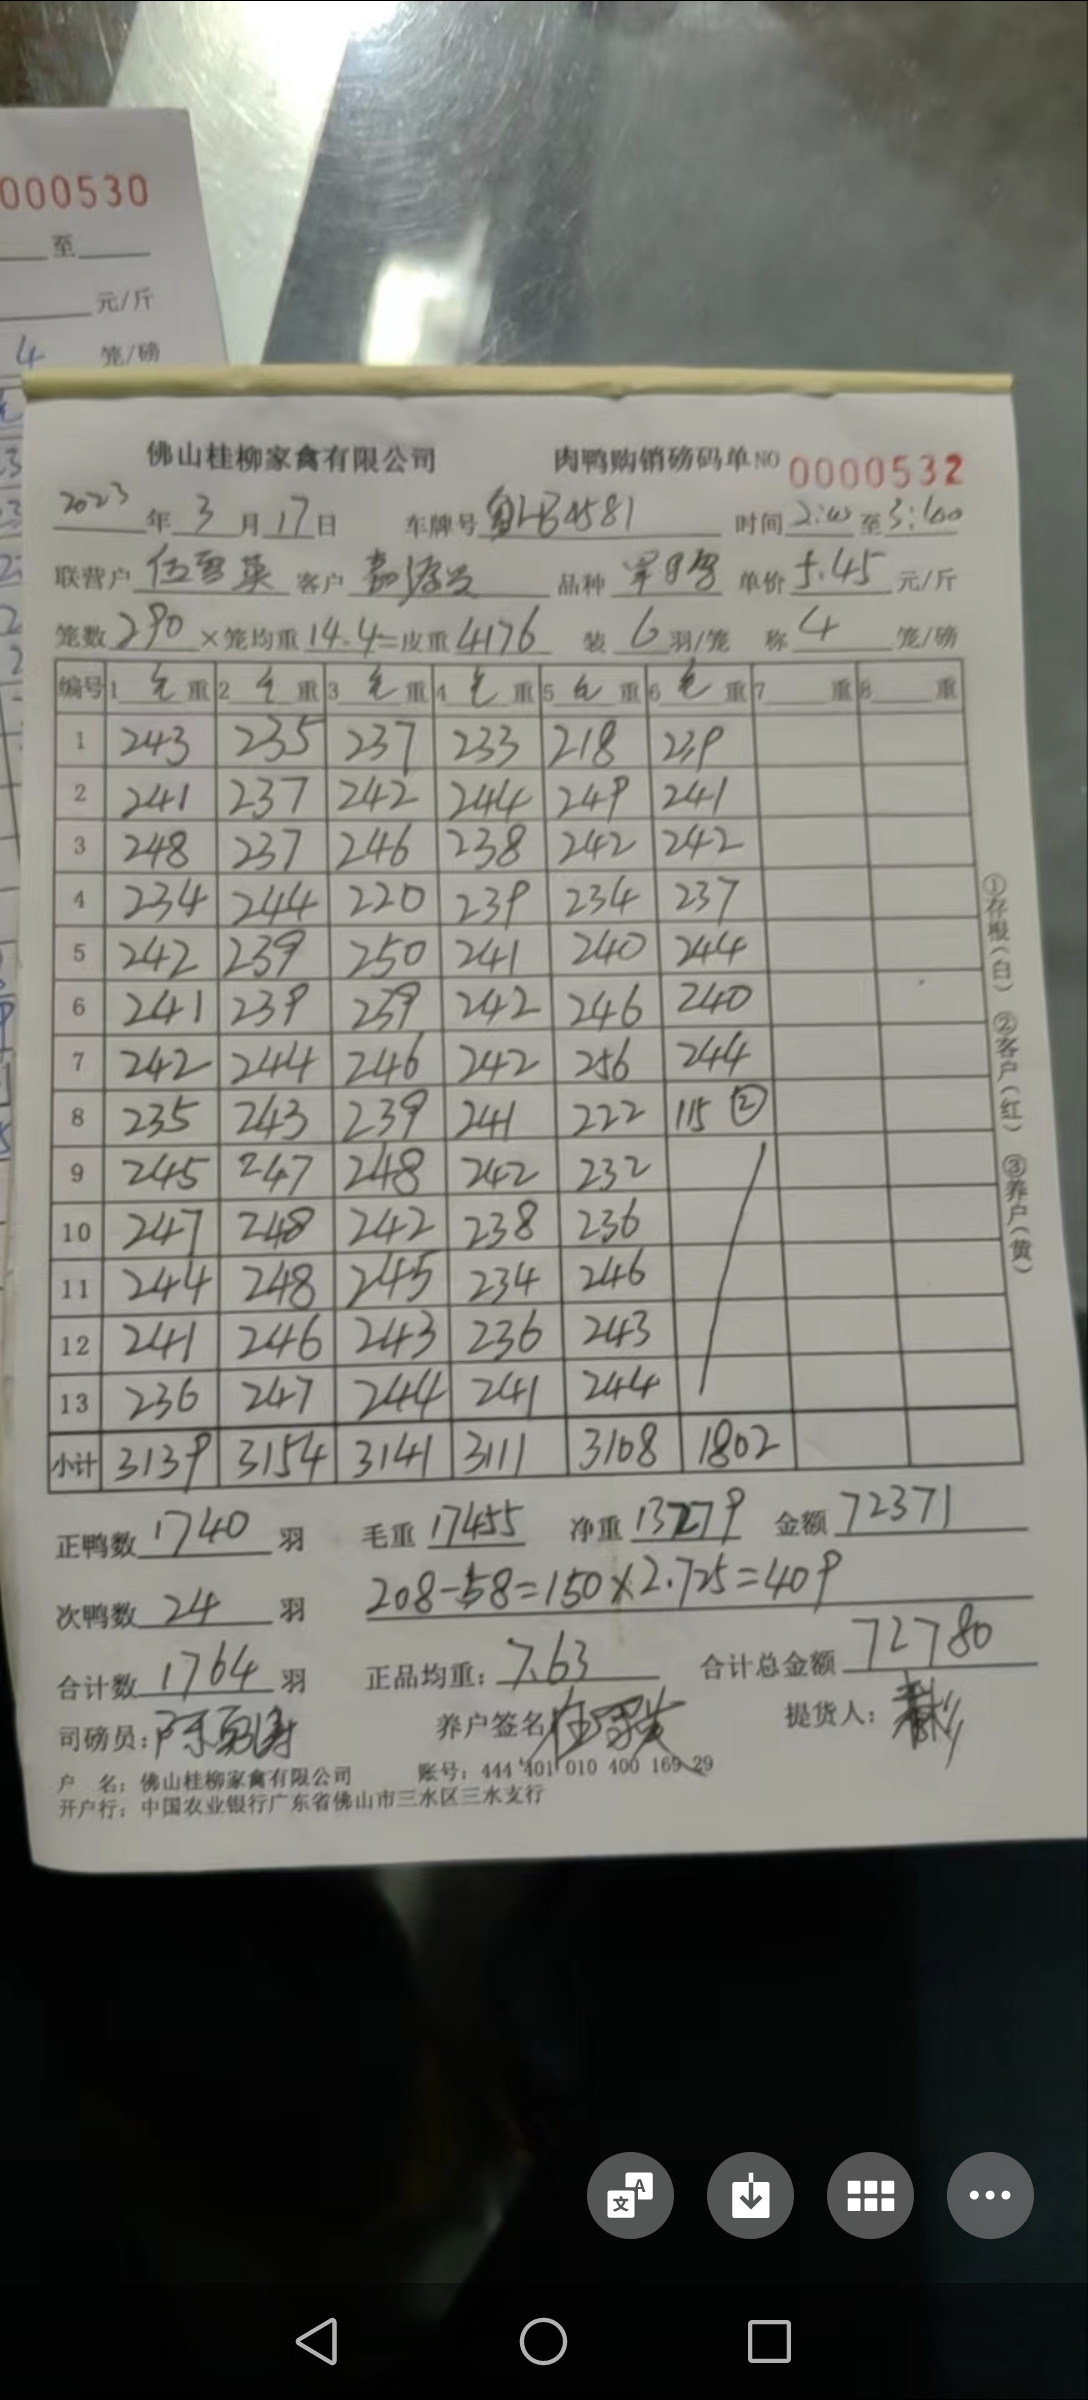 000530
至
元/斤
4 笼/磅
佛山桂柳家禽有限公司 肉鸭购销磅码单NO 0000532
2023年3月17日 车牌号 LB4581 时间2:00至3:00
联营户伍雪英 客户 品种 单价5.45元/斤
笼数290×笼均重14.4=皮重4176 装6羽/笼 称4笼/磅
编号 1毛重 2毛重 3毛重 4毛重 5毛重 6毛重 7重 8重
1 243 235 237 233 218 239
2 241 237 242 244 249 241
3 248 237 246 238 242 242
4 234 244 220 239 234 237
5 242 239 250 241 240 244
6 241 239 259 242 246 240
7 242 244 246 242 256 244
8 235 243 239 241 222 115 ②
9 245 247 248 242 232
10 247 248 242 238 236
11 244 248 245 234 246
12 241 246 243 236 243
13 236 247 244 241 244
小计 3139 3154 3141 3111 3108 1802
正鸭数1740羽 毛重17455 净重13279 金额72371
次鸭数24羽 208-58=150×2.725=409
合计数1764羽 正品均重:7.63 合计总金额72780
司磅员: 养户签名 提货人:
户 名:佛山桂柳家禽有限公司 账号:444 401 010 400 169 29
开户行:中国农业银行广东省佛山市三水区三水支行
①存根(白) ②客户(红) ③养户(黄)